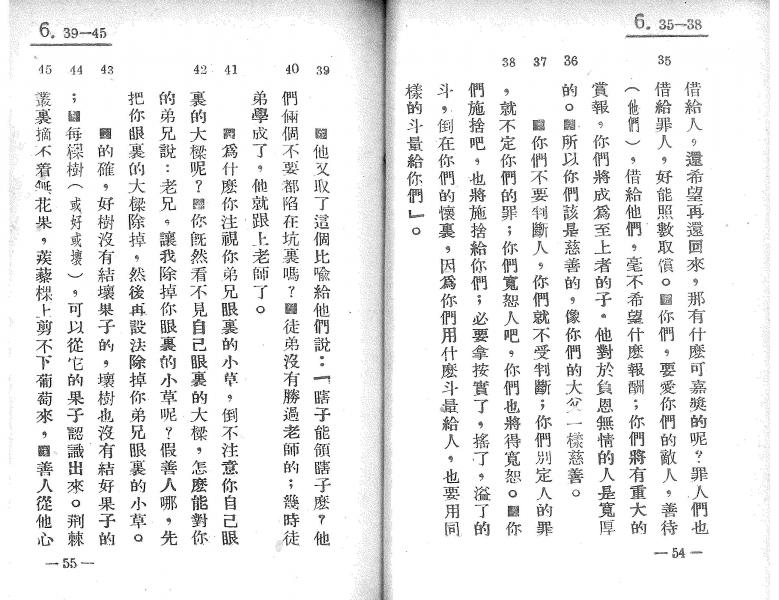 6. 35—38
35
借給人，還希望再還回來，那有什麼可嘉獎的呢？罪人們也
借給罪人，好能照數取償。■你們，要愛你們的敵人，善待
（他們），借給他們，毫不希望什麼報酬；你們將有重大的
賞報，你們將成為至上者的子。他對於負恩無情的人是寬厚
36
的。■所以你們該是慈善的，像你們的大父一樣慈善。
37
■你們不要判斷人，你們就不受判斷；你們別定人的罪
38
，就不定你們的罪；你們寬恕人吧，你們也將得寬恕。■你
們施捨吧，也將施捨給你們；必要拿按實了，搖了，溢了的
斗，倒在你們的懷裏，因為你們用什麼斗量給人，也要用同
樣的斗量給你們』。
—54—
6. 39—45
39
■他又取了這個比喻給他們說：「瞎子能領瞎子麼？他
40
們倆個不要都陷在坑裏嗎？■徒弟沒有勝過老師的；幾時徒
弟學成了，他就跟上老師了。
41
■為什麼你注視你弟兄眼裏的小草，倒不注意你自己眼
42
裏的大樑呢？■你既然看不見自己眼裏的大樑，怎麼能對你
的弟兄說：老兄，讓我除掉你眼裏的小草呢？假善人哪，先
把你眼裏的大樑除掉，然後再設法除掉你弟兄眼裏的小草。
43
■的確，好樹沒有結壞果子的，壞樹也沒有結好果子的
44
；■每樑樹（或好或壞），可以從它的果子認識出來。荊棘
45
叢裏摘不着無花果，蒺藜棵上剪不下葡萄來，■善人從他心
—55—